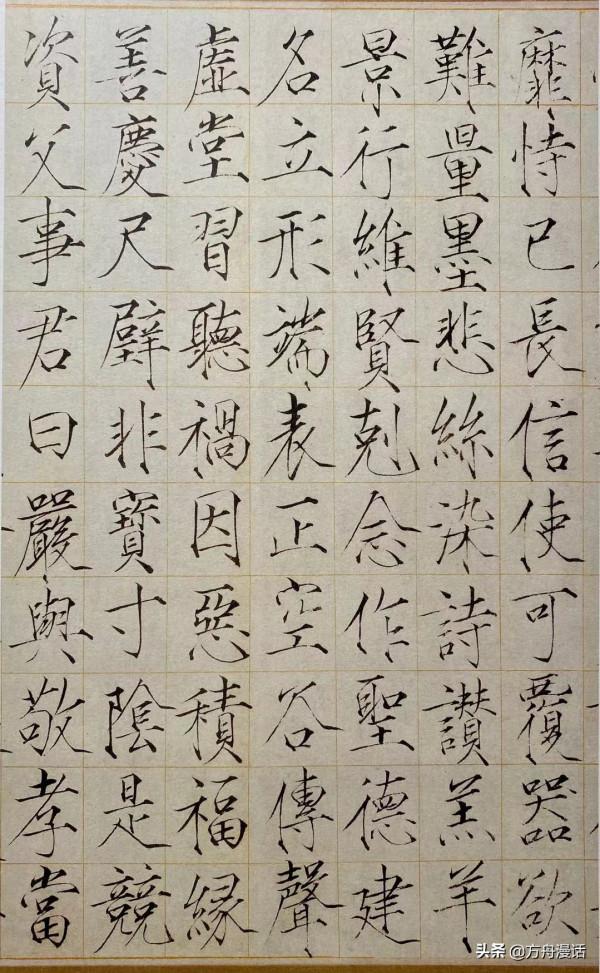 靡恃己長信使可覆器欲
難量墨悲絲染詩讚羔羊
景行維賢剋念作聖德建
名立形端表正空谷傳聲
虛堂習聽禍因惡積福緣
善慶尺璧非寶寸陰是競
資父事君曰嚴與敬孝當
头条 @方舟漫话